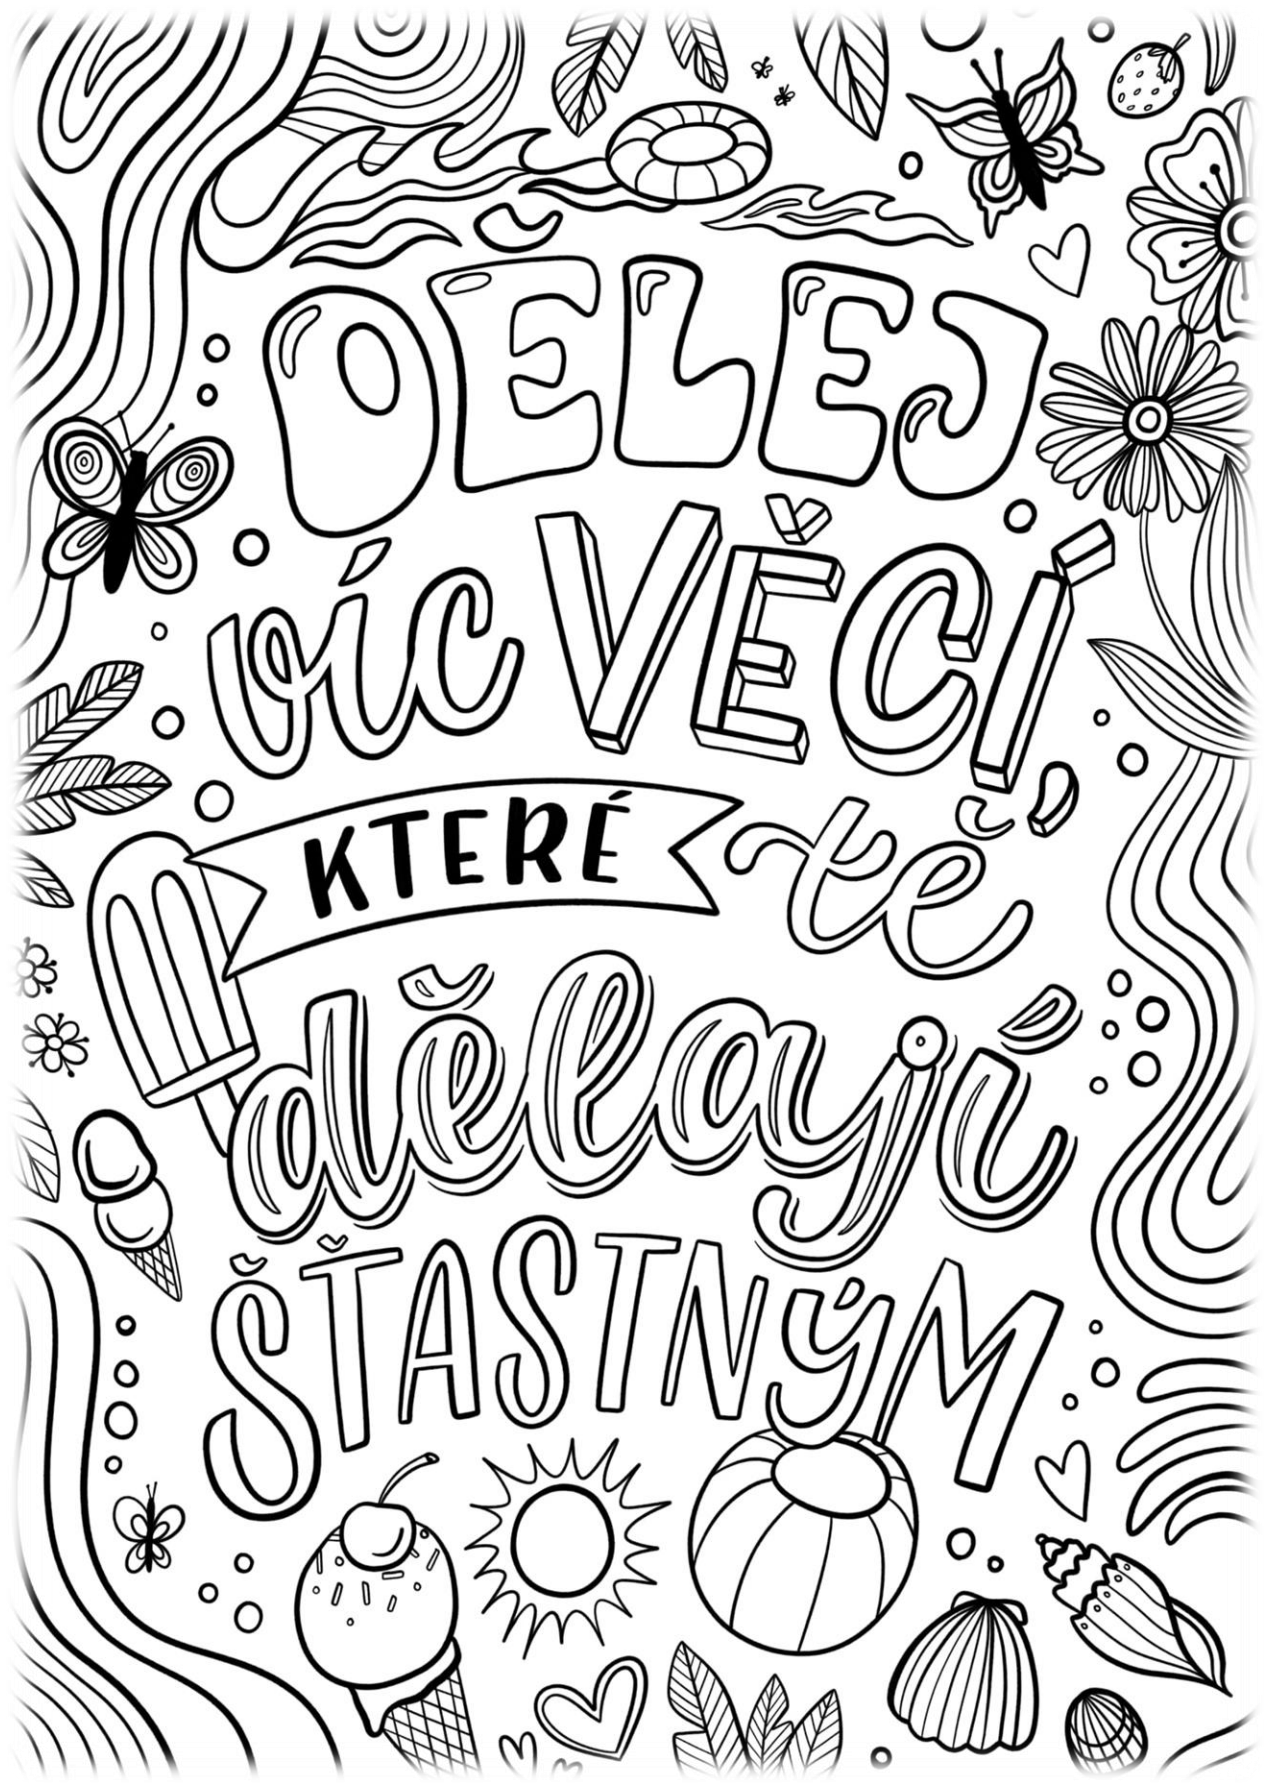 DĚLEJ
víc VĚCÍ,
KTERÉ tě
dělají
ŠŤASTNýM